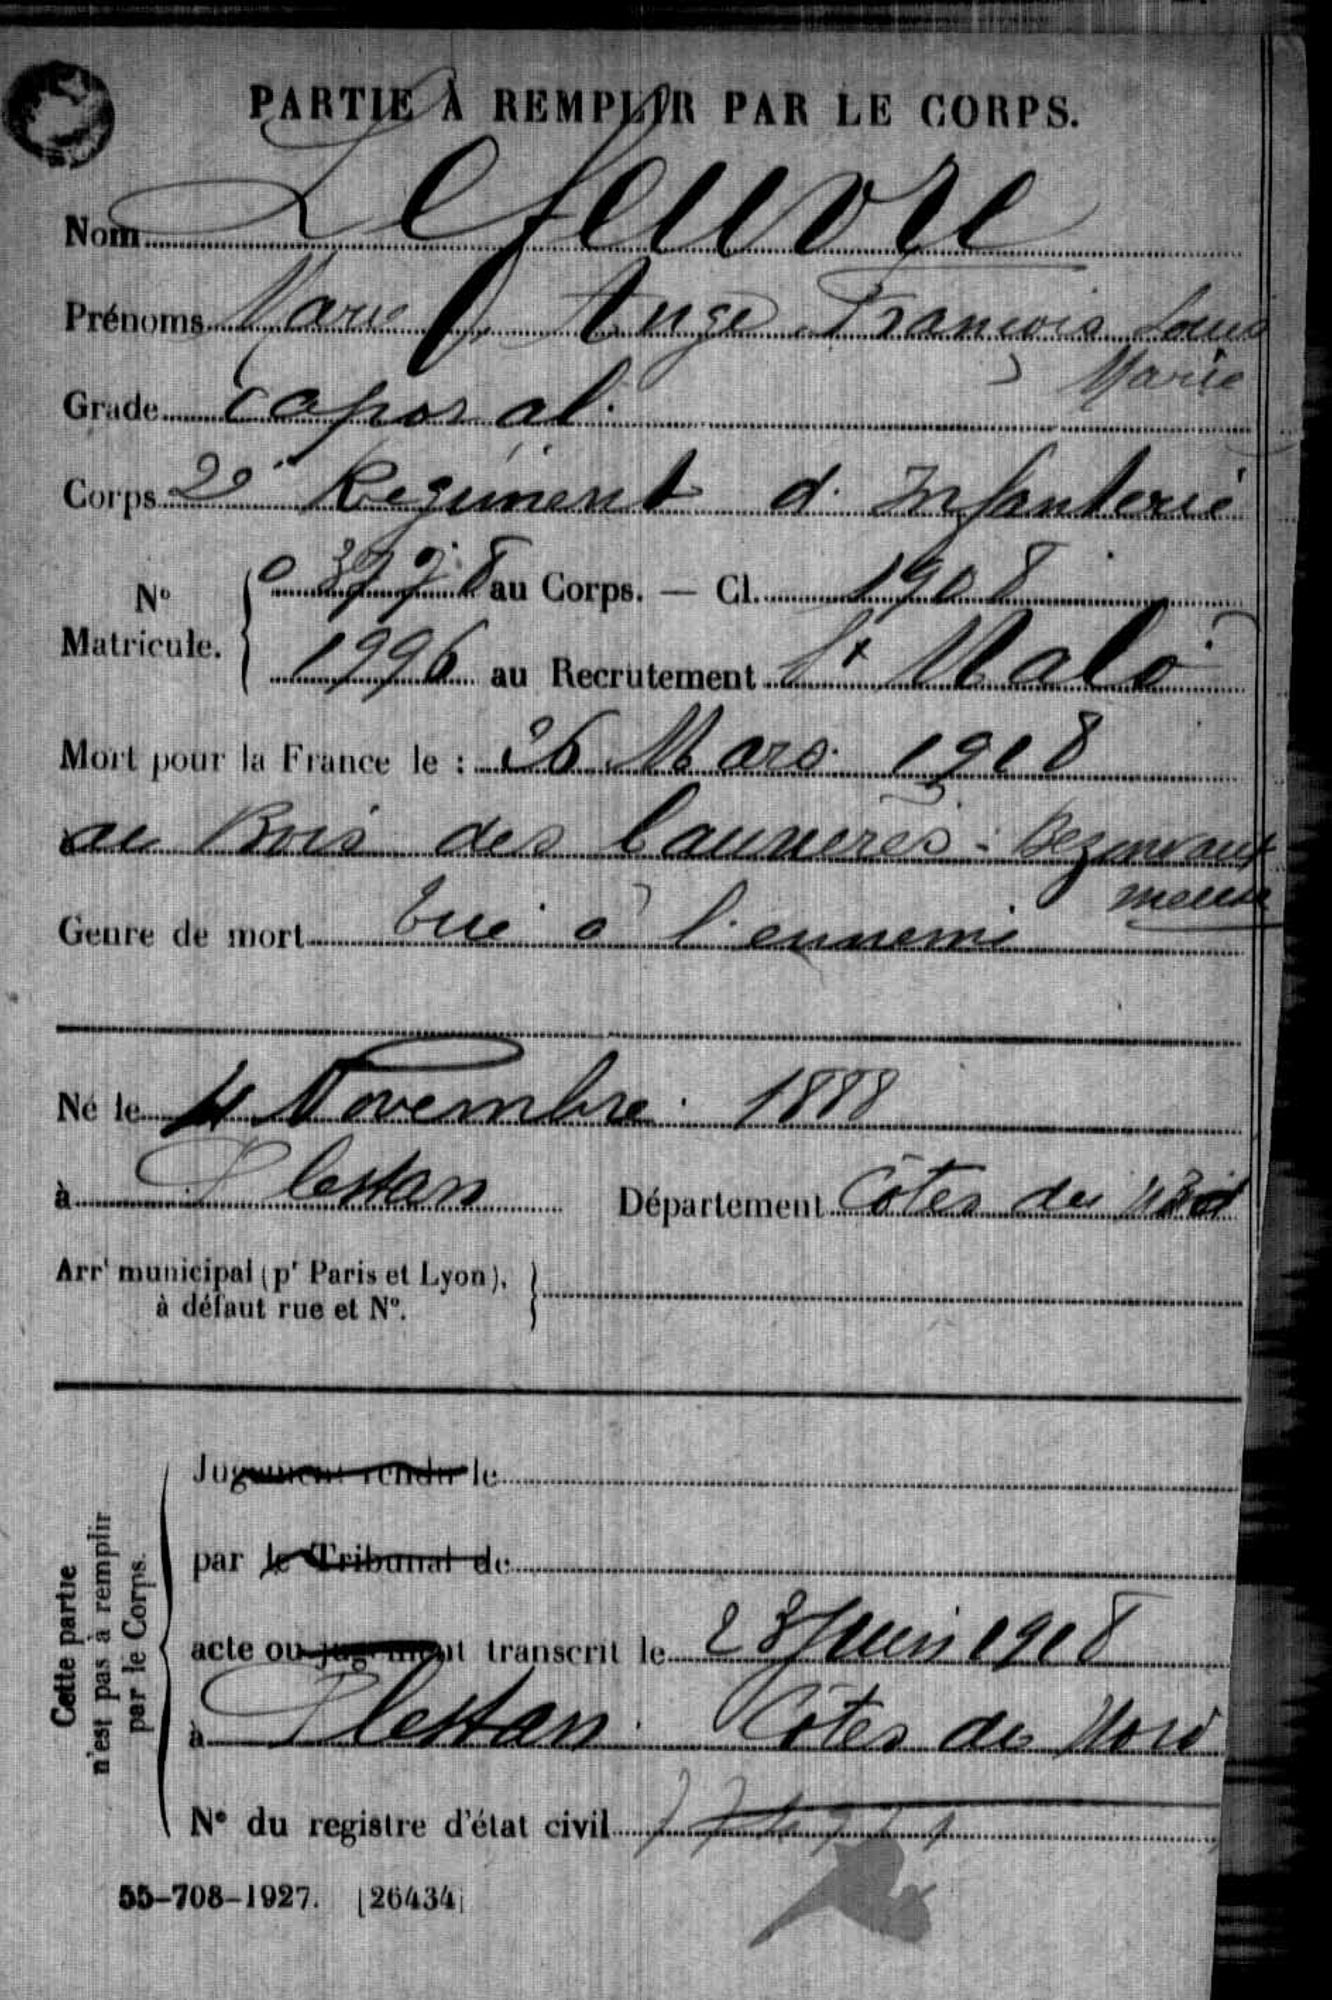 PARTIE À REMPLIR PAR LE CORPS.
Nom Lefeuvre
Prénoms Marie Ange François Louis
Marie
Grade caporal
Corps 2e Régiment d'Infanterie
N° Matricule. { 0 3778 au Corps. — Cl. 1908
1996 au Recrutement St Malo
Mort pour la France le : 26 Mars 1918
au Bois des Caurières - Bezonvaux
Meuse
Genre de mort tué à l'ennemi
Né le 4 Novembre 1888
à Plestan Département Côtes du Nord
Arrt municipal (pr Paris et Lyon),
à défaut rue et N°.
Cette partie
n'est pas à remplir
par le Corps.
Jugement rendu le
par le Tribunal de
acte ou jugement transcrit le 23 Juin 1918
à Plestan Côtes du Nord
N° du registre d'état civil
55-708-1927. [26434]